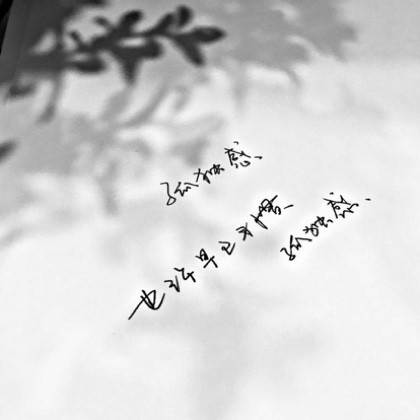 孤独感、
也许早已习惯、
孤独感.